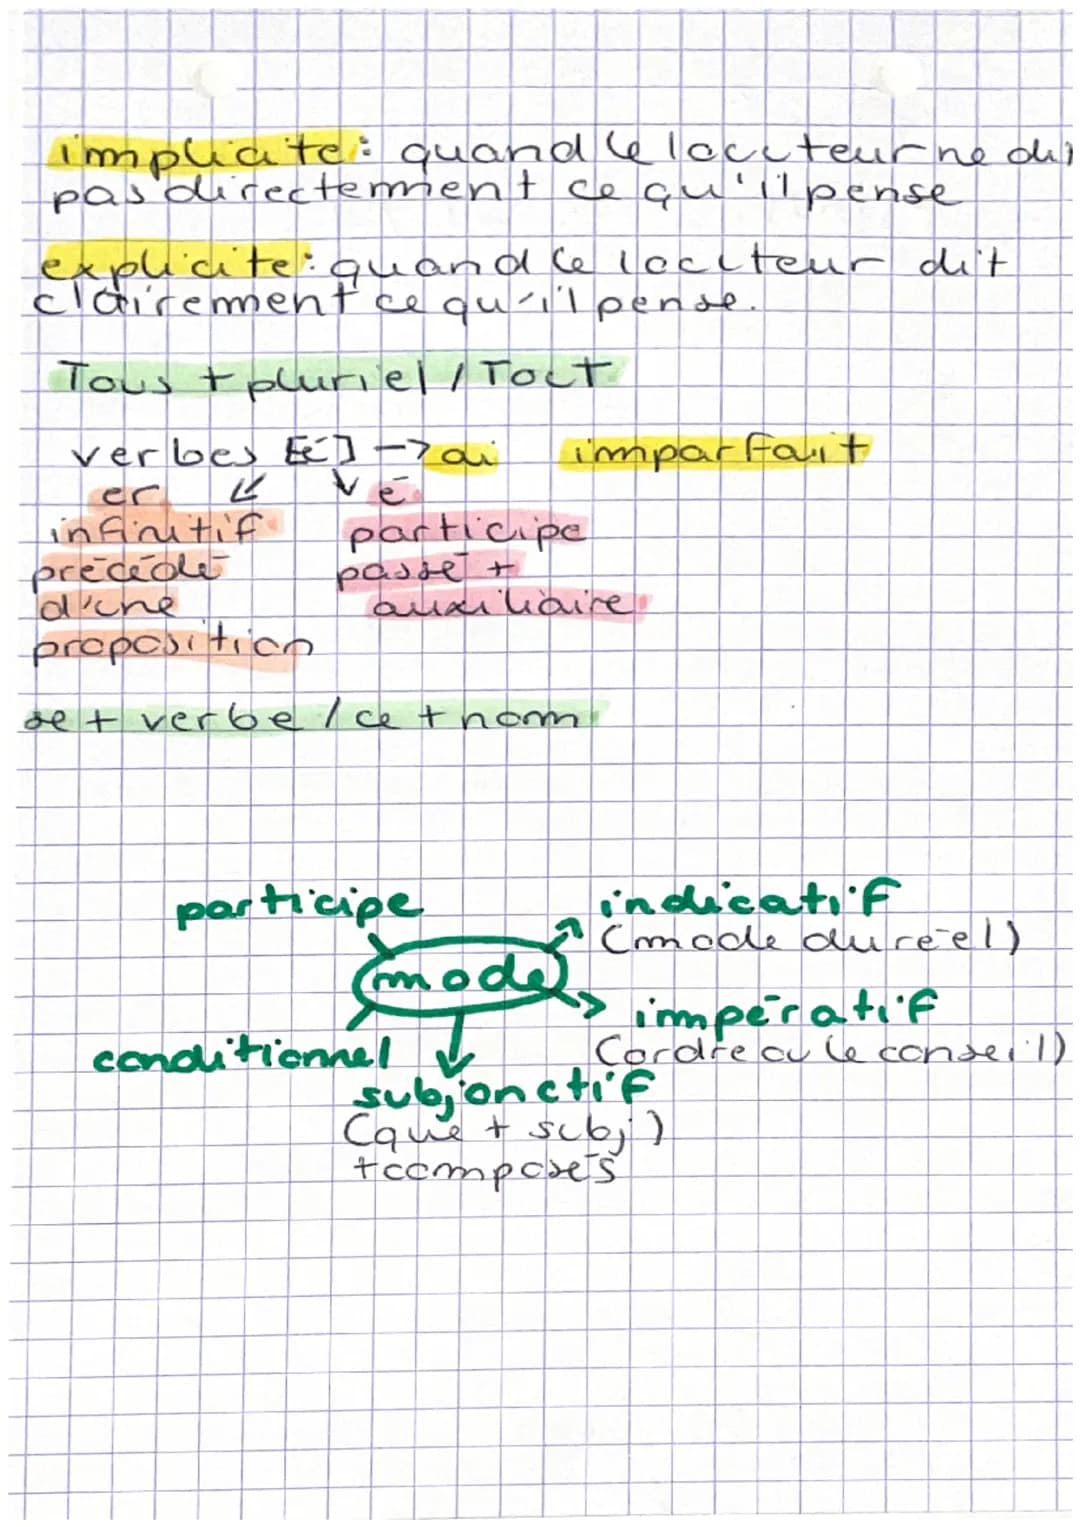 implicite : quand le locuteur ne dit
pas directement ce qu'il pense
explicite : quand le locuteur dit
clairement ce qu'il pense.
Tous + pluriel / Tout
verbes [é] → ai imparfait
er é
infinitif participe
précédé passé +
d'une auxiliaire
proposition
se + verbe / ce + nom
participe indicatif
(mode du réel)
mode
impératif
conditionnel (ordre ou le conseil)
subjonctif
(que + subj)
+ composés